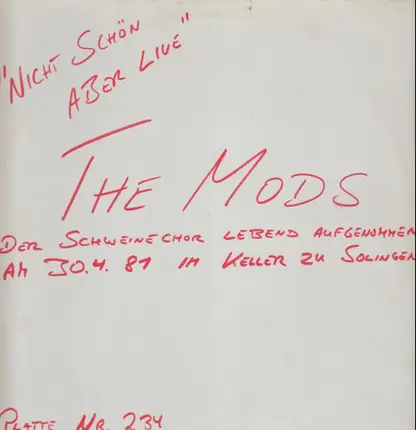 "NICHT SCHÖN
ABER LIVE"
THE MODS
DER SCHWEINECHOR LEBEND AUFGENOMMEN
AM 30.4.81 IM KELLER ZU SOLINGEN
PLATTE NR. 234